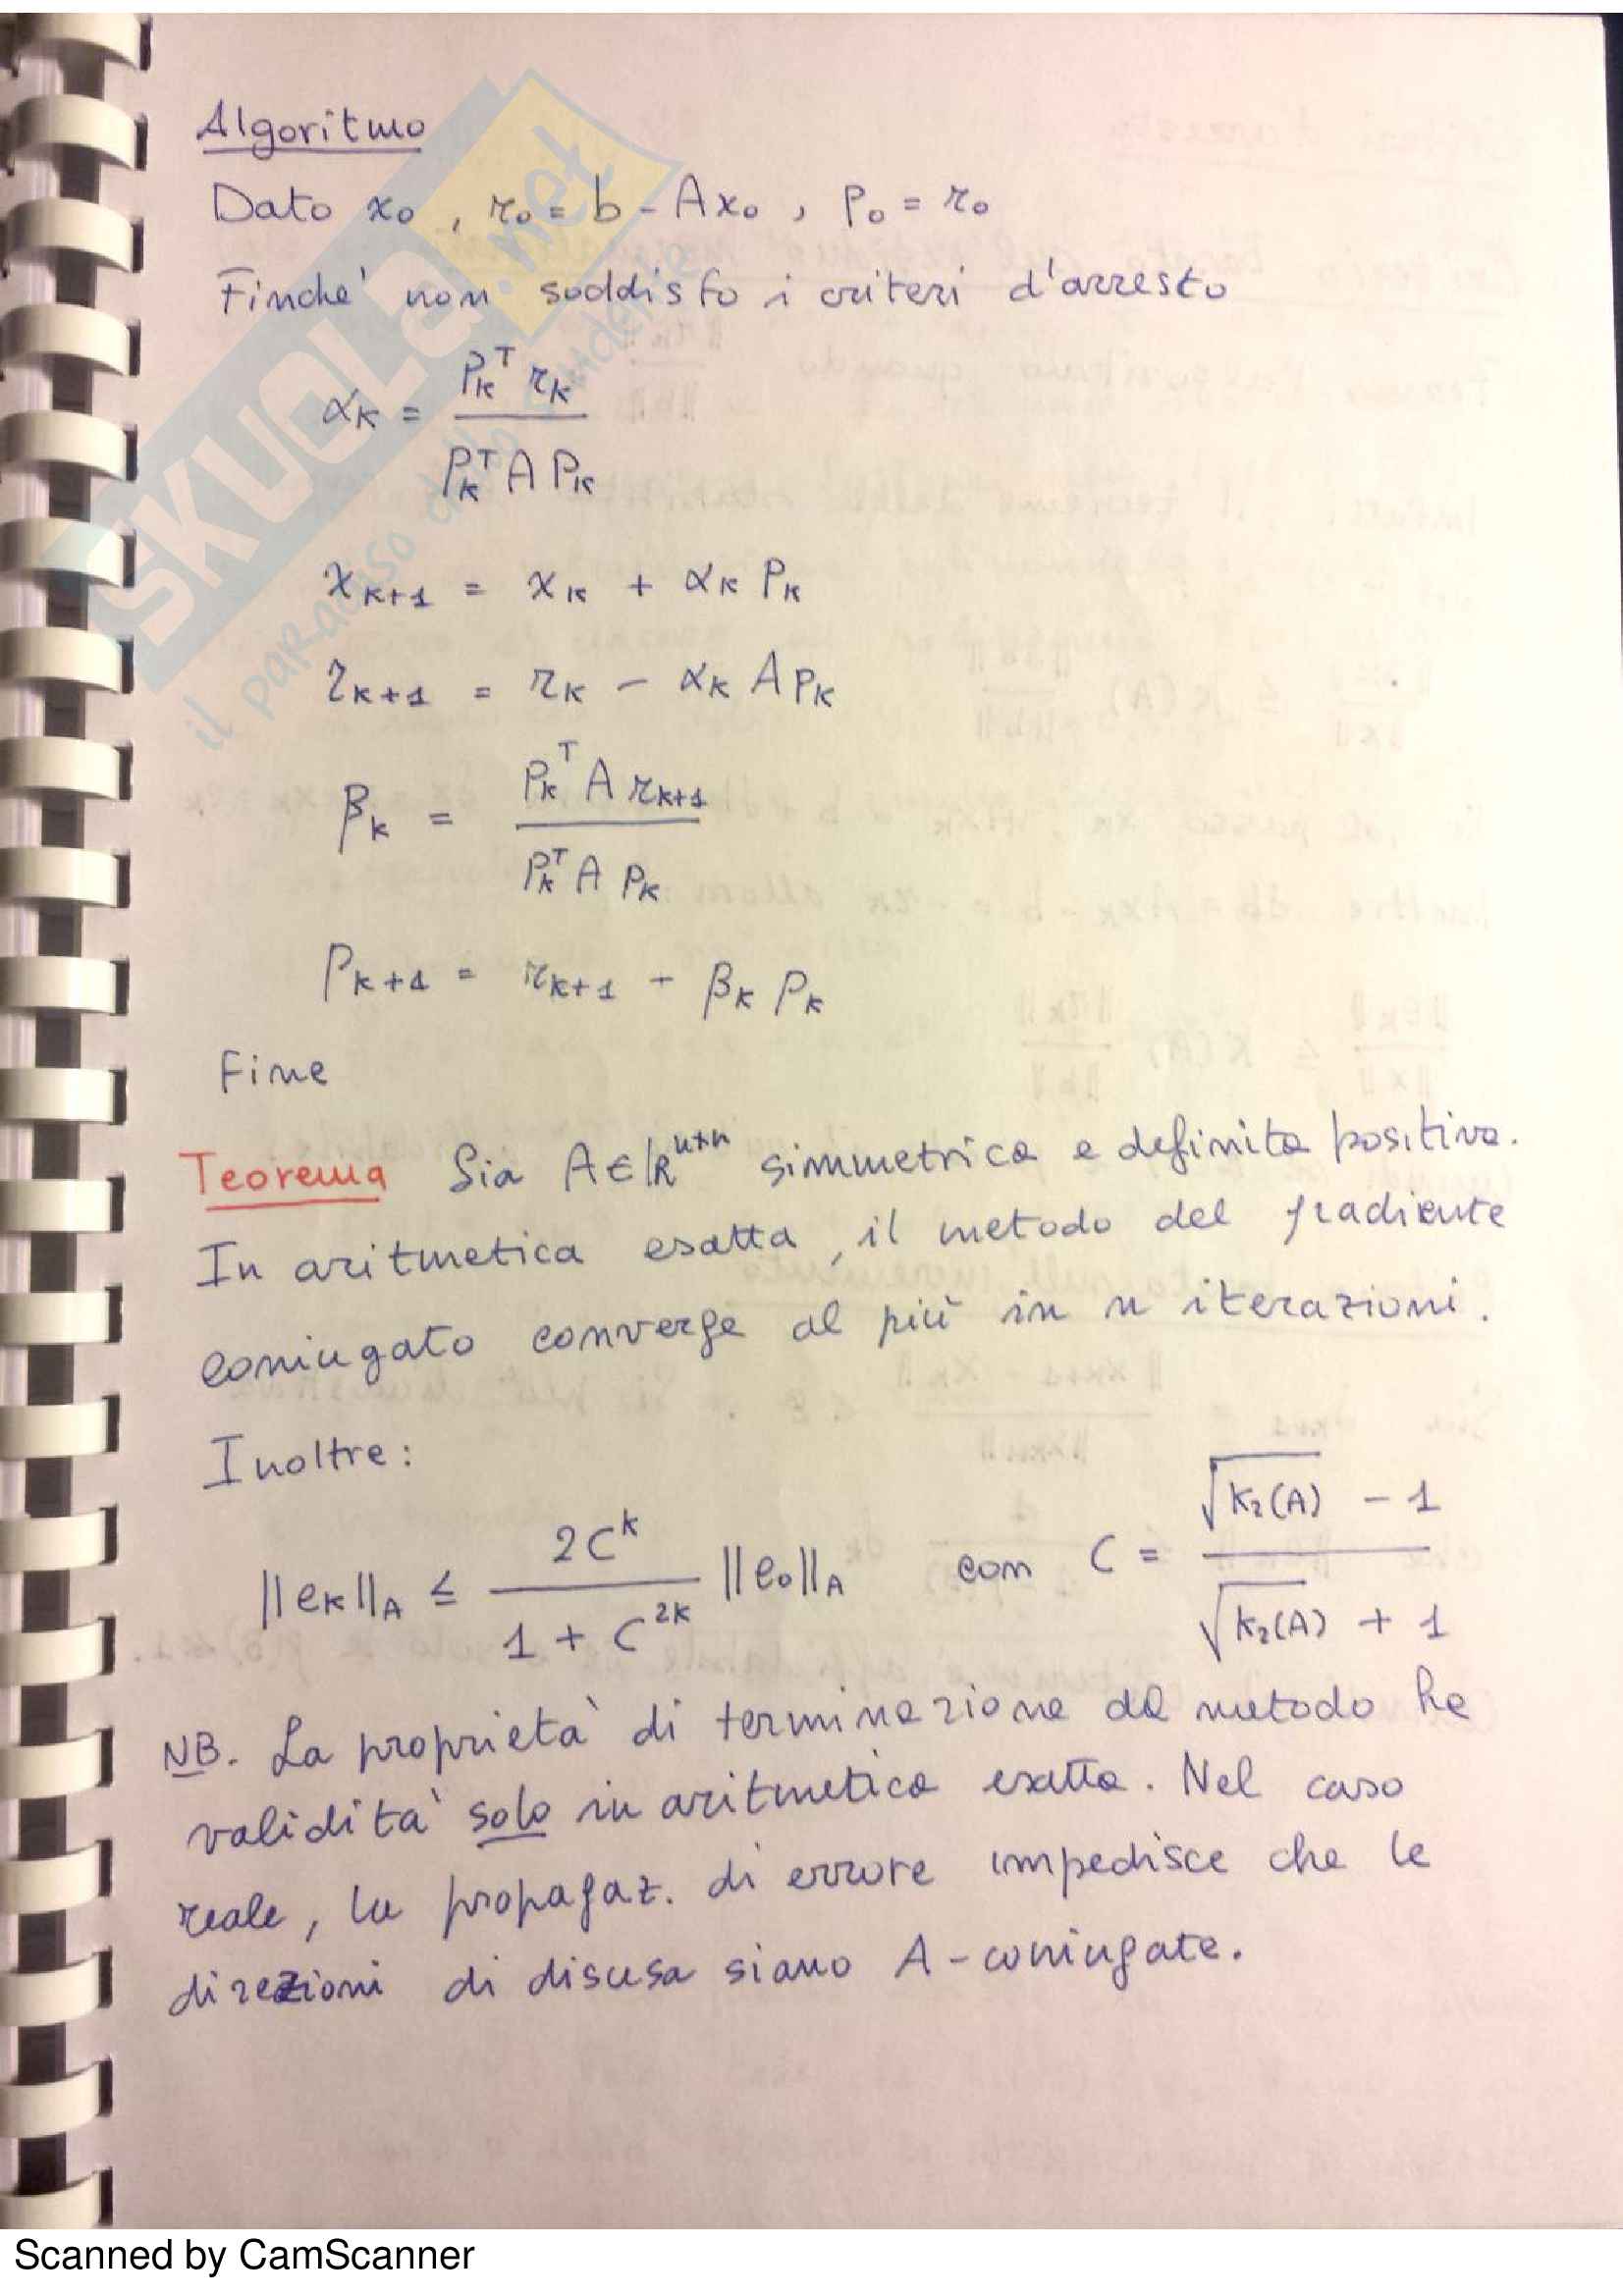 Algoritmo
Dato x₀ , r₀ = b - Ax₀ , p₀ = r₀
Finche' non soddisfo i criteri d'arresto
αₖ = pₖᵀ rₖ / pₖᵀ A pₖ
xₖ₊₁ = xₖ + αₖ pₖ
rₖ₊₁ = rₖ - αₖ A pₖ
βₖ = pₖᵀ A rₖ₊₁ / pₖᵀ A pₖ
pₖ₊₁ = rₖ₊₁ - βₖ pₖ
Fine
Teorema Sia A∈ℝⁿˣⁿ simmetrica e definita positiva.
In aritmetica esatta, il metodo del gradiente
coniugato converge al più in n iterazioni.
Inoltre:
||eₖ||_A ≤ 2Cᵏ / 1 + C²ᵏ ||e₀||_A con C = √K₂(A) - 1 / √K₂(A) + 1
NB. La proprietà di terminazione del metodo ha
validità solo in aritmetica esatta. Nel caso
reale, la propagaz. di errore impedisce che le
direzioni di discesa siano A-coniugate.
SKUOLA.net
il paradiso dello studente
Scanned by CamScanner